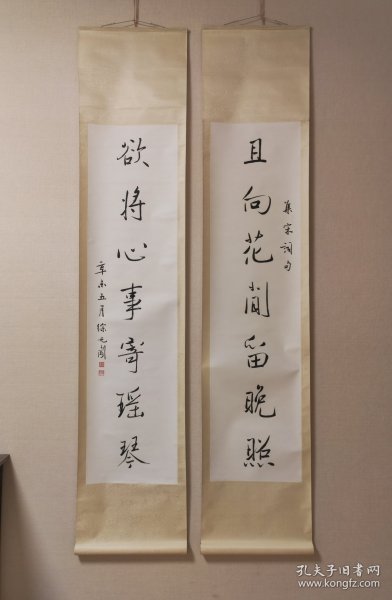 且向花間留晚照
集宋詞句
欲將心事寄瑤琴
辛未五月徐元
孔夫子旧书网
www.kongfz.com